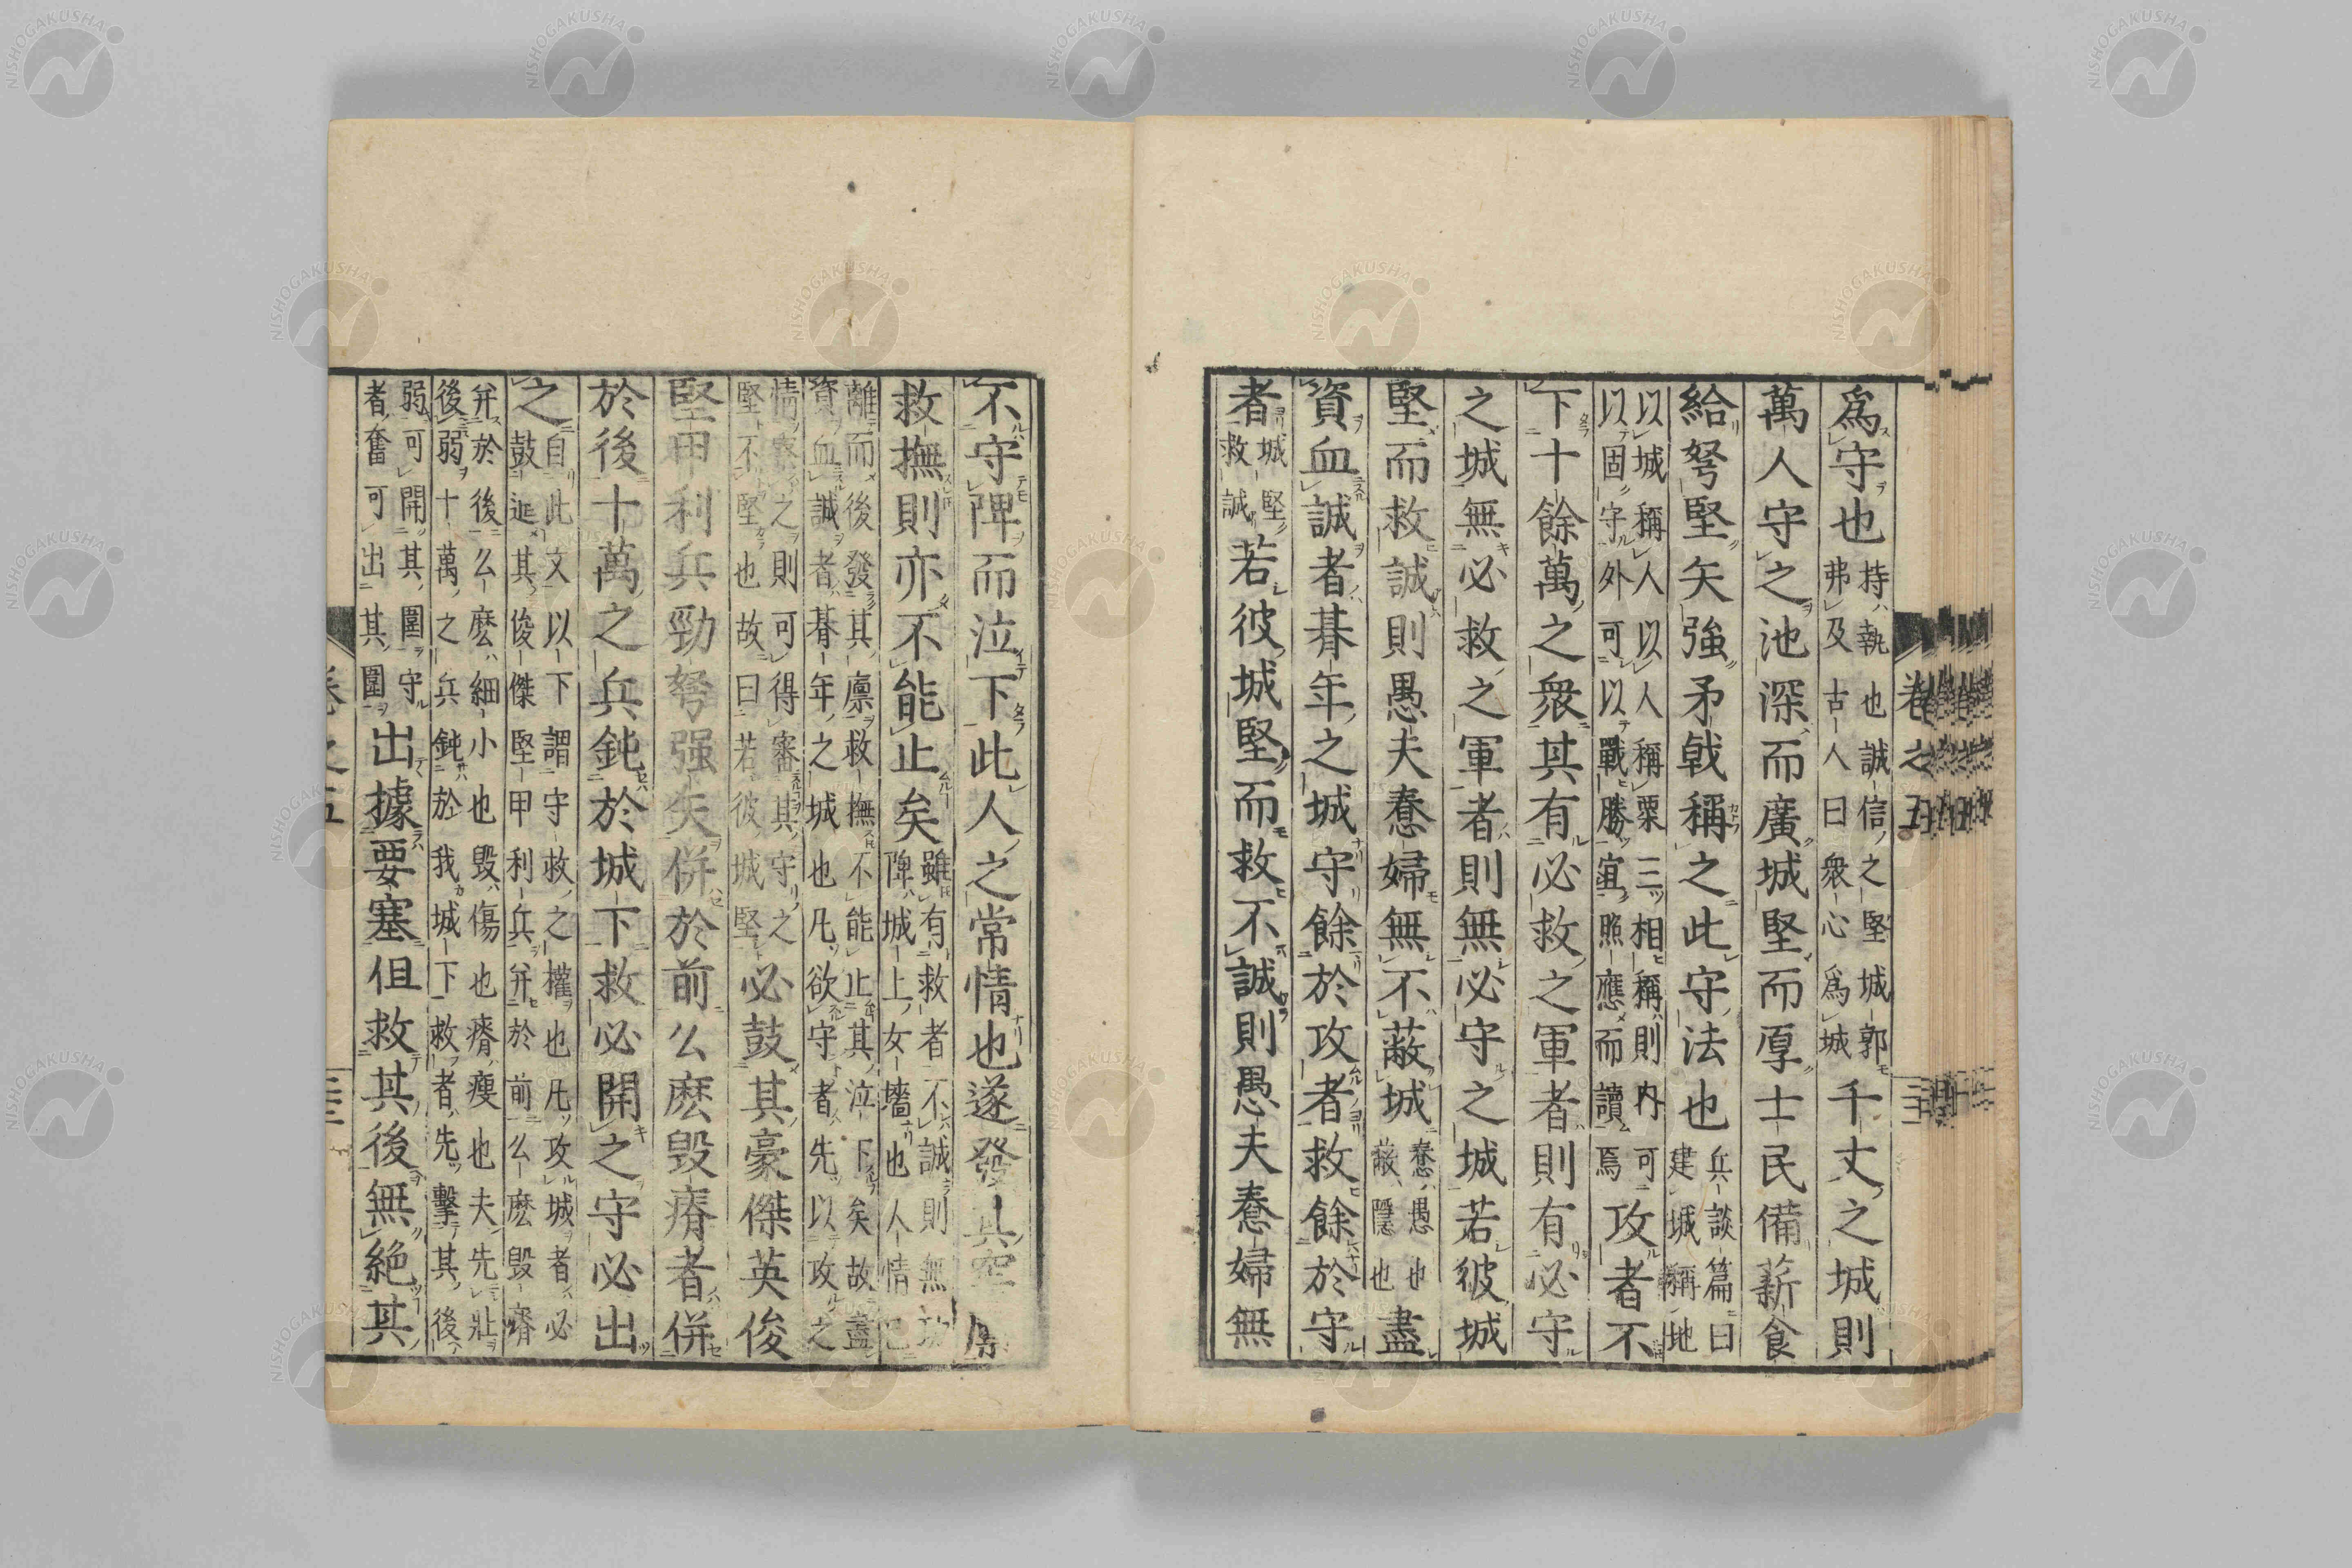 爲守也持ハ執也誠信ノ之堅城郭モ弗及古人曰衆心爲城千丈之城則
萬人守之池深而廣城堅而厚士民備薪食
給弩堅矢強矛戟稱之此守法也兵談篇曰建城稱地
以城稱人以人稱粟三相稱則内可以固守外可以戰勝宜照應而讀焉攻者不
下十餘萬之衆其有必救之軍者則有必守
之城無必救之軍者則無必守之城若彼城
堅而救誠則愚夫憃婦無不蔽城憃愚也蔽隱也盡
資血誠者朞年之城守餘於攻者救餘於守
者城堅救誠若彼城堅而救不誠則愚夫憃婦無
不守陴而泣下此人之常情也遂發其窖
救撫則亦不能止矣雖有救者不誠則無功陴城上女墻也人情已
離而後發其廩救撫不能止其泣下矣故盡資血誠者朞年之城也凡欲守者先以攻之
情察之則可得審其守之堅不堅也故曰若彼城堅必鼓其豪傑英俊
堅甲利兵勁弩强矢併於前么麽毀瘠者併
於後十萬之兵鈍於城下救必開之守必出
之自此文以下謂守救之權也凡攻城者必鼓逛其俊傑堅甲利兵并於前么麽毀瘠
并於後么麽細小也毀傷也瘠瘦也夫先壯後弱十萬之兵鈍於我城下救者先擊其後
弱可開其圍守者奮可出其圍出據要塞但救其後無絶其
卷之五